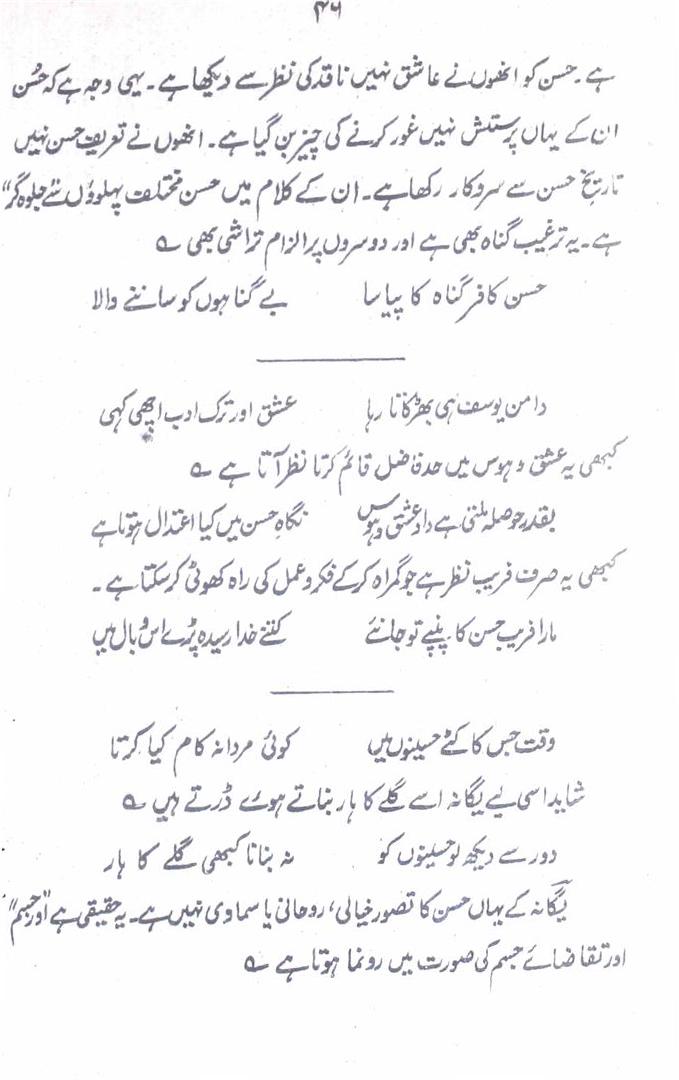 ۴۶
ہے۔ حسن کو انھوں نے عاشق نہیں ناقد کی نظر سے دیکھا ہے۔ یہی وجہ ہے کہ حُسن
ان کے یہاں پرستش نہیں غور کرنے کی چیز بن گیا ہے۔ انھوں نے تعریف حسن نہیں
تاریخِ حسن سے سروکار رکھا ہے۔ ان کے کلام میں حسن مختلف پہلوؤں سے جلوہ گر
ہے۔ یہ ترغیب گناہ بھی ہے اور دوسروں پر الزام تراشی بھی ؎
حسن کافر گناہ کا پیاسا بے گناہوں کو ساننے والا
دامن یوسف ہی بھڑکاتا رہا عشق اور ترک ادب اچھی کہی
کبھی یہ عشق و ہوس میں حد فاضل قائم کرتا نظر آتا ہے ؎
بقدر حوصلہ ملتی ہے داد عشق و ہوس نگاہِ حسن میں کیا اعتدال ہوتا ہے
کبھی یہ صرف فریب نظر ہے جو گمراہ کر کے فکر و عمل کی راہ کھوٹی کر سکتا ہے۔
مارا فریب حسن کا پنپے تو جانئے کتنے خدا رسیدہ پڑے اس وبال میں
وقت جس کا کٹے حسینوں میں کوئی مردانہ کام کیا کرتا
شاید اسی لیے یگانہ اسے گلے کا ہار بناتے ہوے ڈرتے ہیں ؎
دور سے دیکھ لو حسینوں کو نہ بنانا کبھی گلے کا ہار
یگانہ کے یہاں حسن کا تصور خیالی، روحانی یا سماوی نہیں ہے۔ یہ حقیقی ہے اور جسم
اور تقاضائے جسم کی صورت میں رونما ہوتا ہے ؎